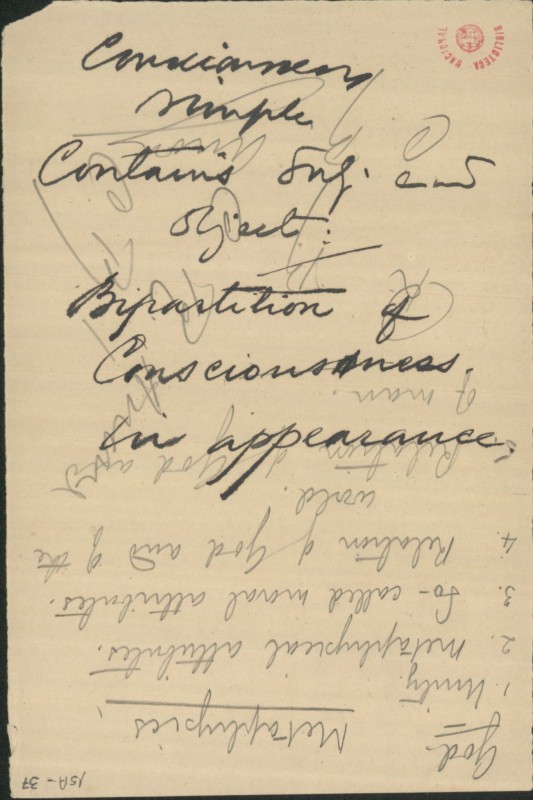 Consciousness
simple
Contains Subj. and
object:
Bipartition of
Consciousness.
in appearance.
Metaphysics.
God.
1. Unity.
2. Metaphysical attributes.
3. So-called moral attributes.
4. Relation of God and of the
world.
5. Relation of God and
of man.
15A-37
BIBLIOTECA NACIONAL